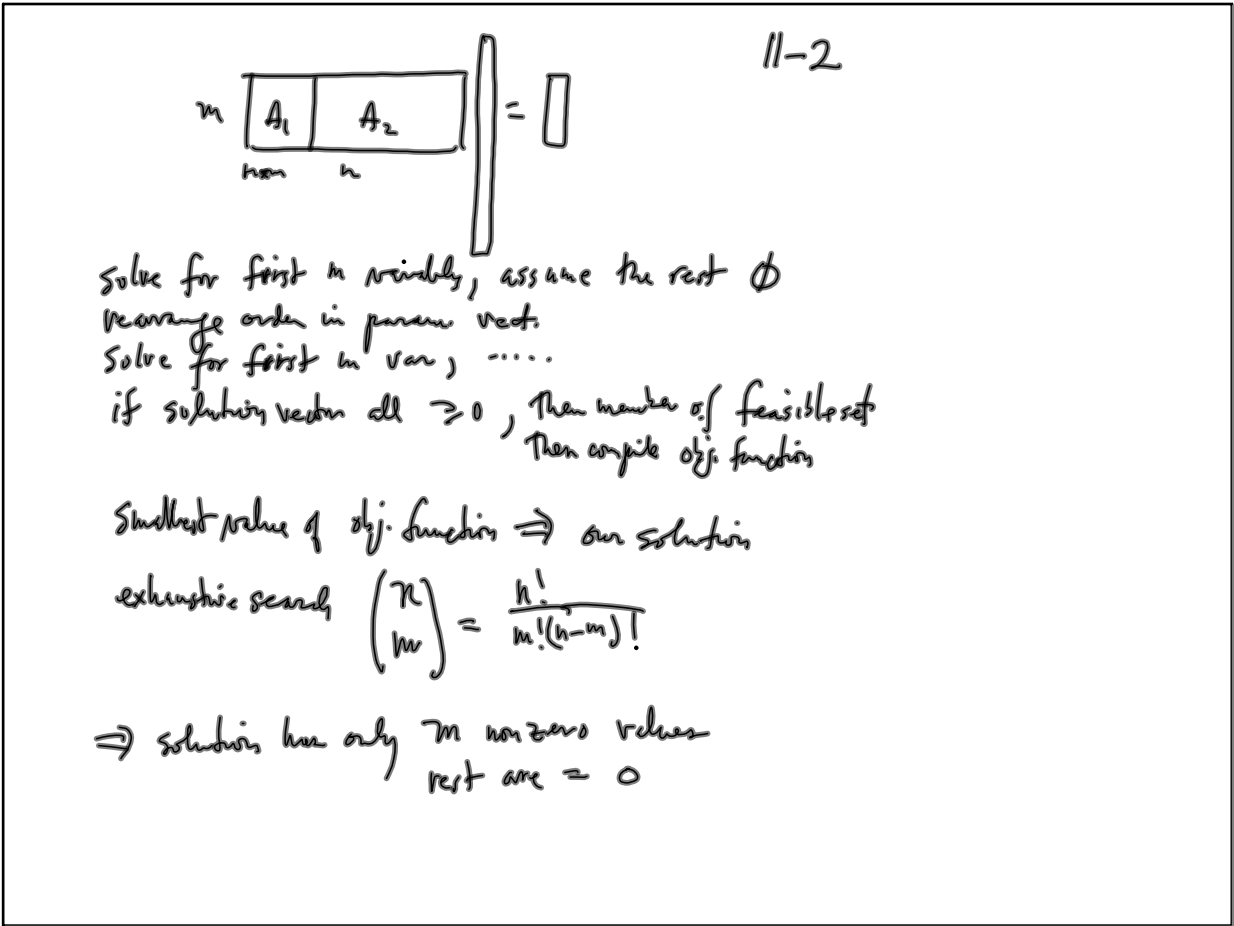 11-2
m A₁ A₂ =
n
solve for first m variables, assume the rest ∅
rearrange order in param. vect.
Solve for first m var, .....
if solution vector all ≥ 0, then member of feasible set
then compute obj. function
Smallest value of obj. function ⇒ our solution
exhaustive search (n m) = n! / m!(n-m)!
⇒ solution has only m nonzero values
rest are = 0